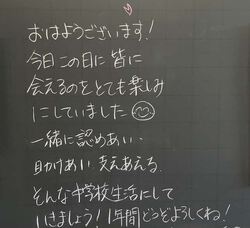 おはようございます!
今日この日に皆に
会えるのをとても楽しみ
にしていました
一緒に認めあい、
助けあい、支えあえる、
そんな中学校生活にして
いきましょう!1年間どうぞよろしくね!